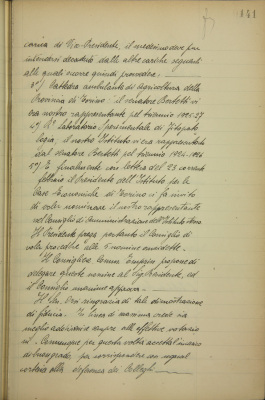 141
carica di Vice Presidente, il medesimo deve pur
intendersi decaduto dalle altre cariche seguenti
alle quali occorre quindi provvedere.
3°) Cattedra ambulante di Agricoltura della
Provincia di Torino: il senatore Bertetti vi
era nostro rappresentante pel triennio 1925-27
4°) R° Laboratorio Sperimentale di Fitopato
logia, il nostro Istituto vi era rappresentato
dal senatore Bertetti pel triennio 1924-1926
5°) E finalmente con lettera del 23 corrente
febbraio il Presidente dell'Istituto per le
Case Economiche di Torino ci fa invito
di voler nominare il nostro rappresentante
nel Consiglio di Amministrazione dell'Istituto stesso.
Il Presidente prega pertanto il Consiglio di
voler procedere alle 5 nomine anzidette.
Il Consigliere Comm. propone di
delegare queste nomine al Sig. Presidente, ed
il Consiglio unanime approva.
Il ringrazia di tale dimostrazione
di fiducia. In linea di massima crede sia
meglio addivenire sempre alle effettive votazio
ni. Comunque per questa volta accetta l'incarico
di buon grado, per corrispondere con ugual
cortesia alla deferenza dei Colleghi.